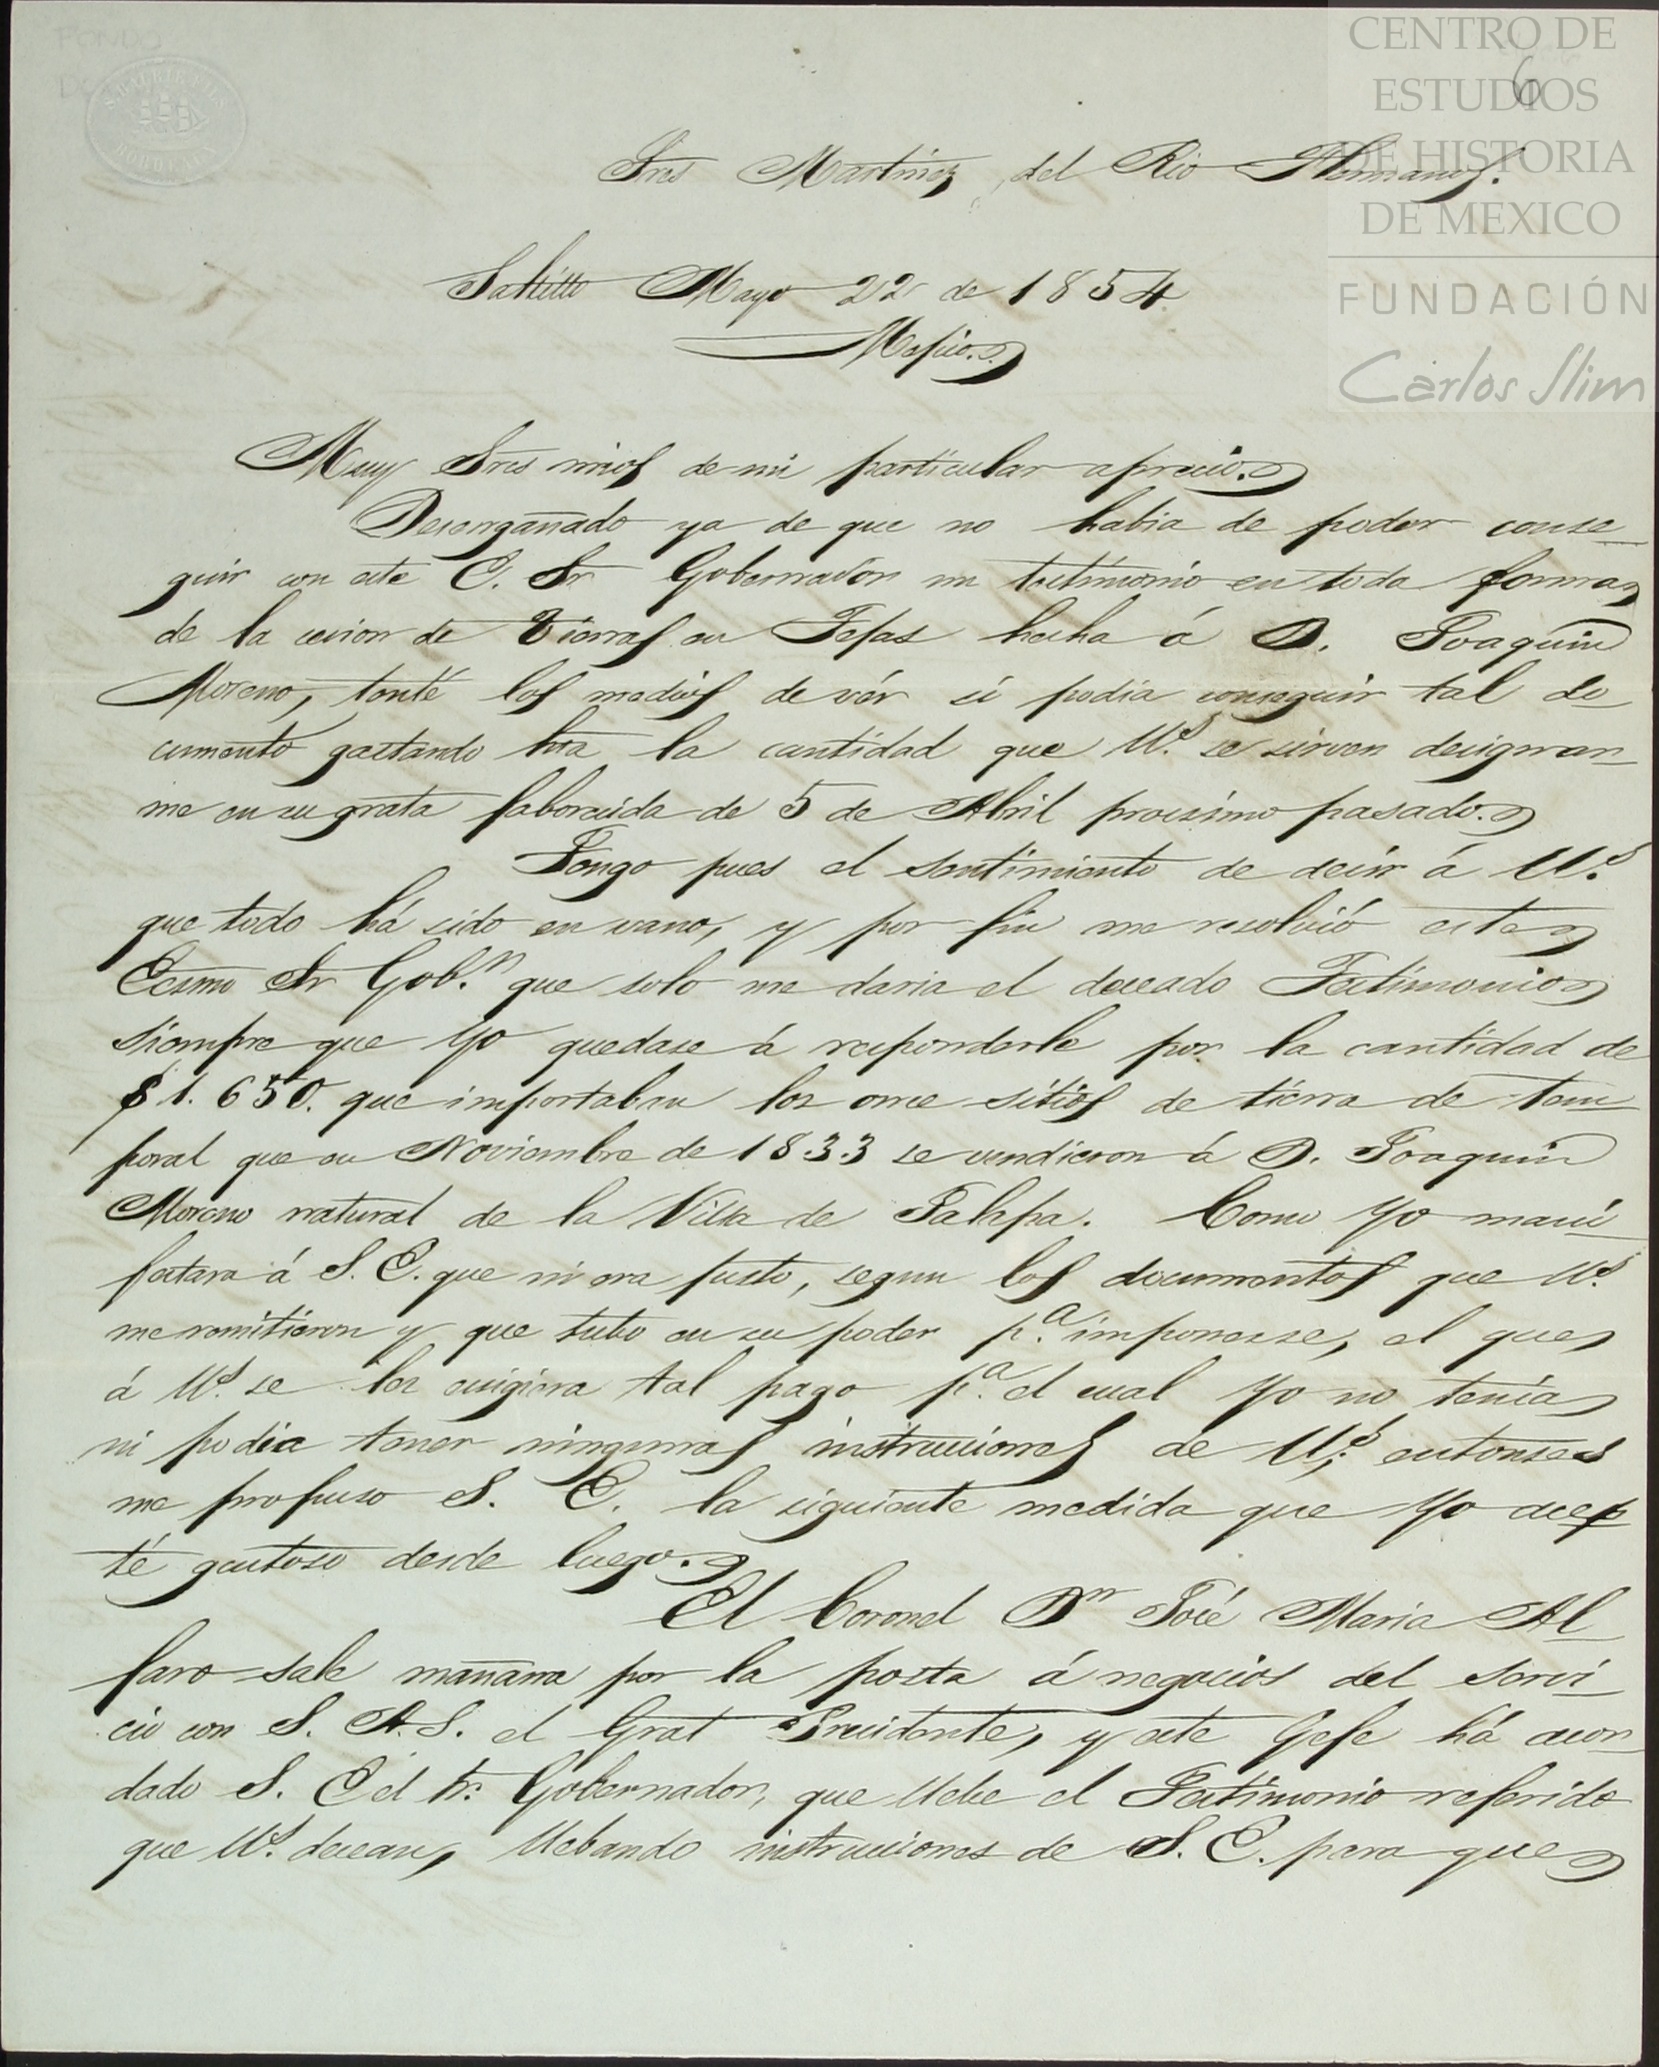 FONDO
CENTRO DE
ESTUDIOS
DE HISTORIA
DE MEXICO
FUNDACIÓN
Carlos Slim
6
BORDEAUX
Sres Martinez del Rio Hermanos.
Saltillo Mayo 22 de 1854
Mejico.
Muy Sres mios de mi particular aprecio.
Desengañado ya de que no habia de poder conse-
guir con este E. Sr Gobernador un testimonio en toda forma
de la cesion de Tierras en Tejas hecha á D. Joaquin
Moreno, tenté los medios de vér si podia conseguir tal do-
cumento gastando hta la cantidad que Us. se sirven designar-
me en su grata faborecida de 5 de Abril procsimo pasado.
Tengo pues el sentimiento de decir á Us.
que todo há sido en vano, y por fin me resolvió este
Ecsmo Sr Gob.r que solo me daria el deceado Testimonio
siempre que yo quedase á responderle por la cantidad de
$1.650. que importaban los once sitios de tierra de tem-
poral que en Noviembre de 1833 se vendieron á D. Joaquin
Moreno natural de la Villa de Jalapa. Como yo mani-
festara á S. E. que ni era justo, segun los documentos que Us.
me remitieron y que tubo en su poder p.a imponerse, el que
á Us. se les exigiera tal pago p.a el cual yo no tenia
ni podia tener ningunas instrucciones de Us; entonses
me propuso S. E. la siguiente medida que yo acep-
té gustoso desde luego.
El Coronel Dn José Maria Al-
faro sale mañana por la posta á negocios del servi-
cio con S. A. S. el Gral Presidente, y este Gefe há acor-
dado S. E el Sr. Gobernador, que llebe el Testimonio referido
que Us. decean, llebando instrucciones de S. E. para que